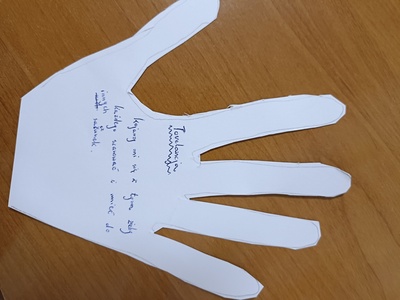 Tolerancja
kojarzy mi się z tym, żeby
każdego szanować i mieć do
innych szacunek